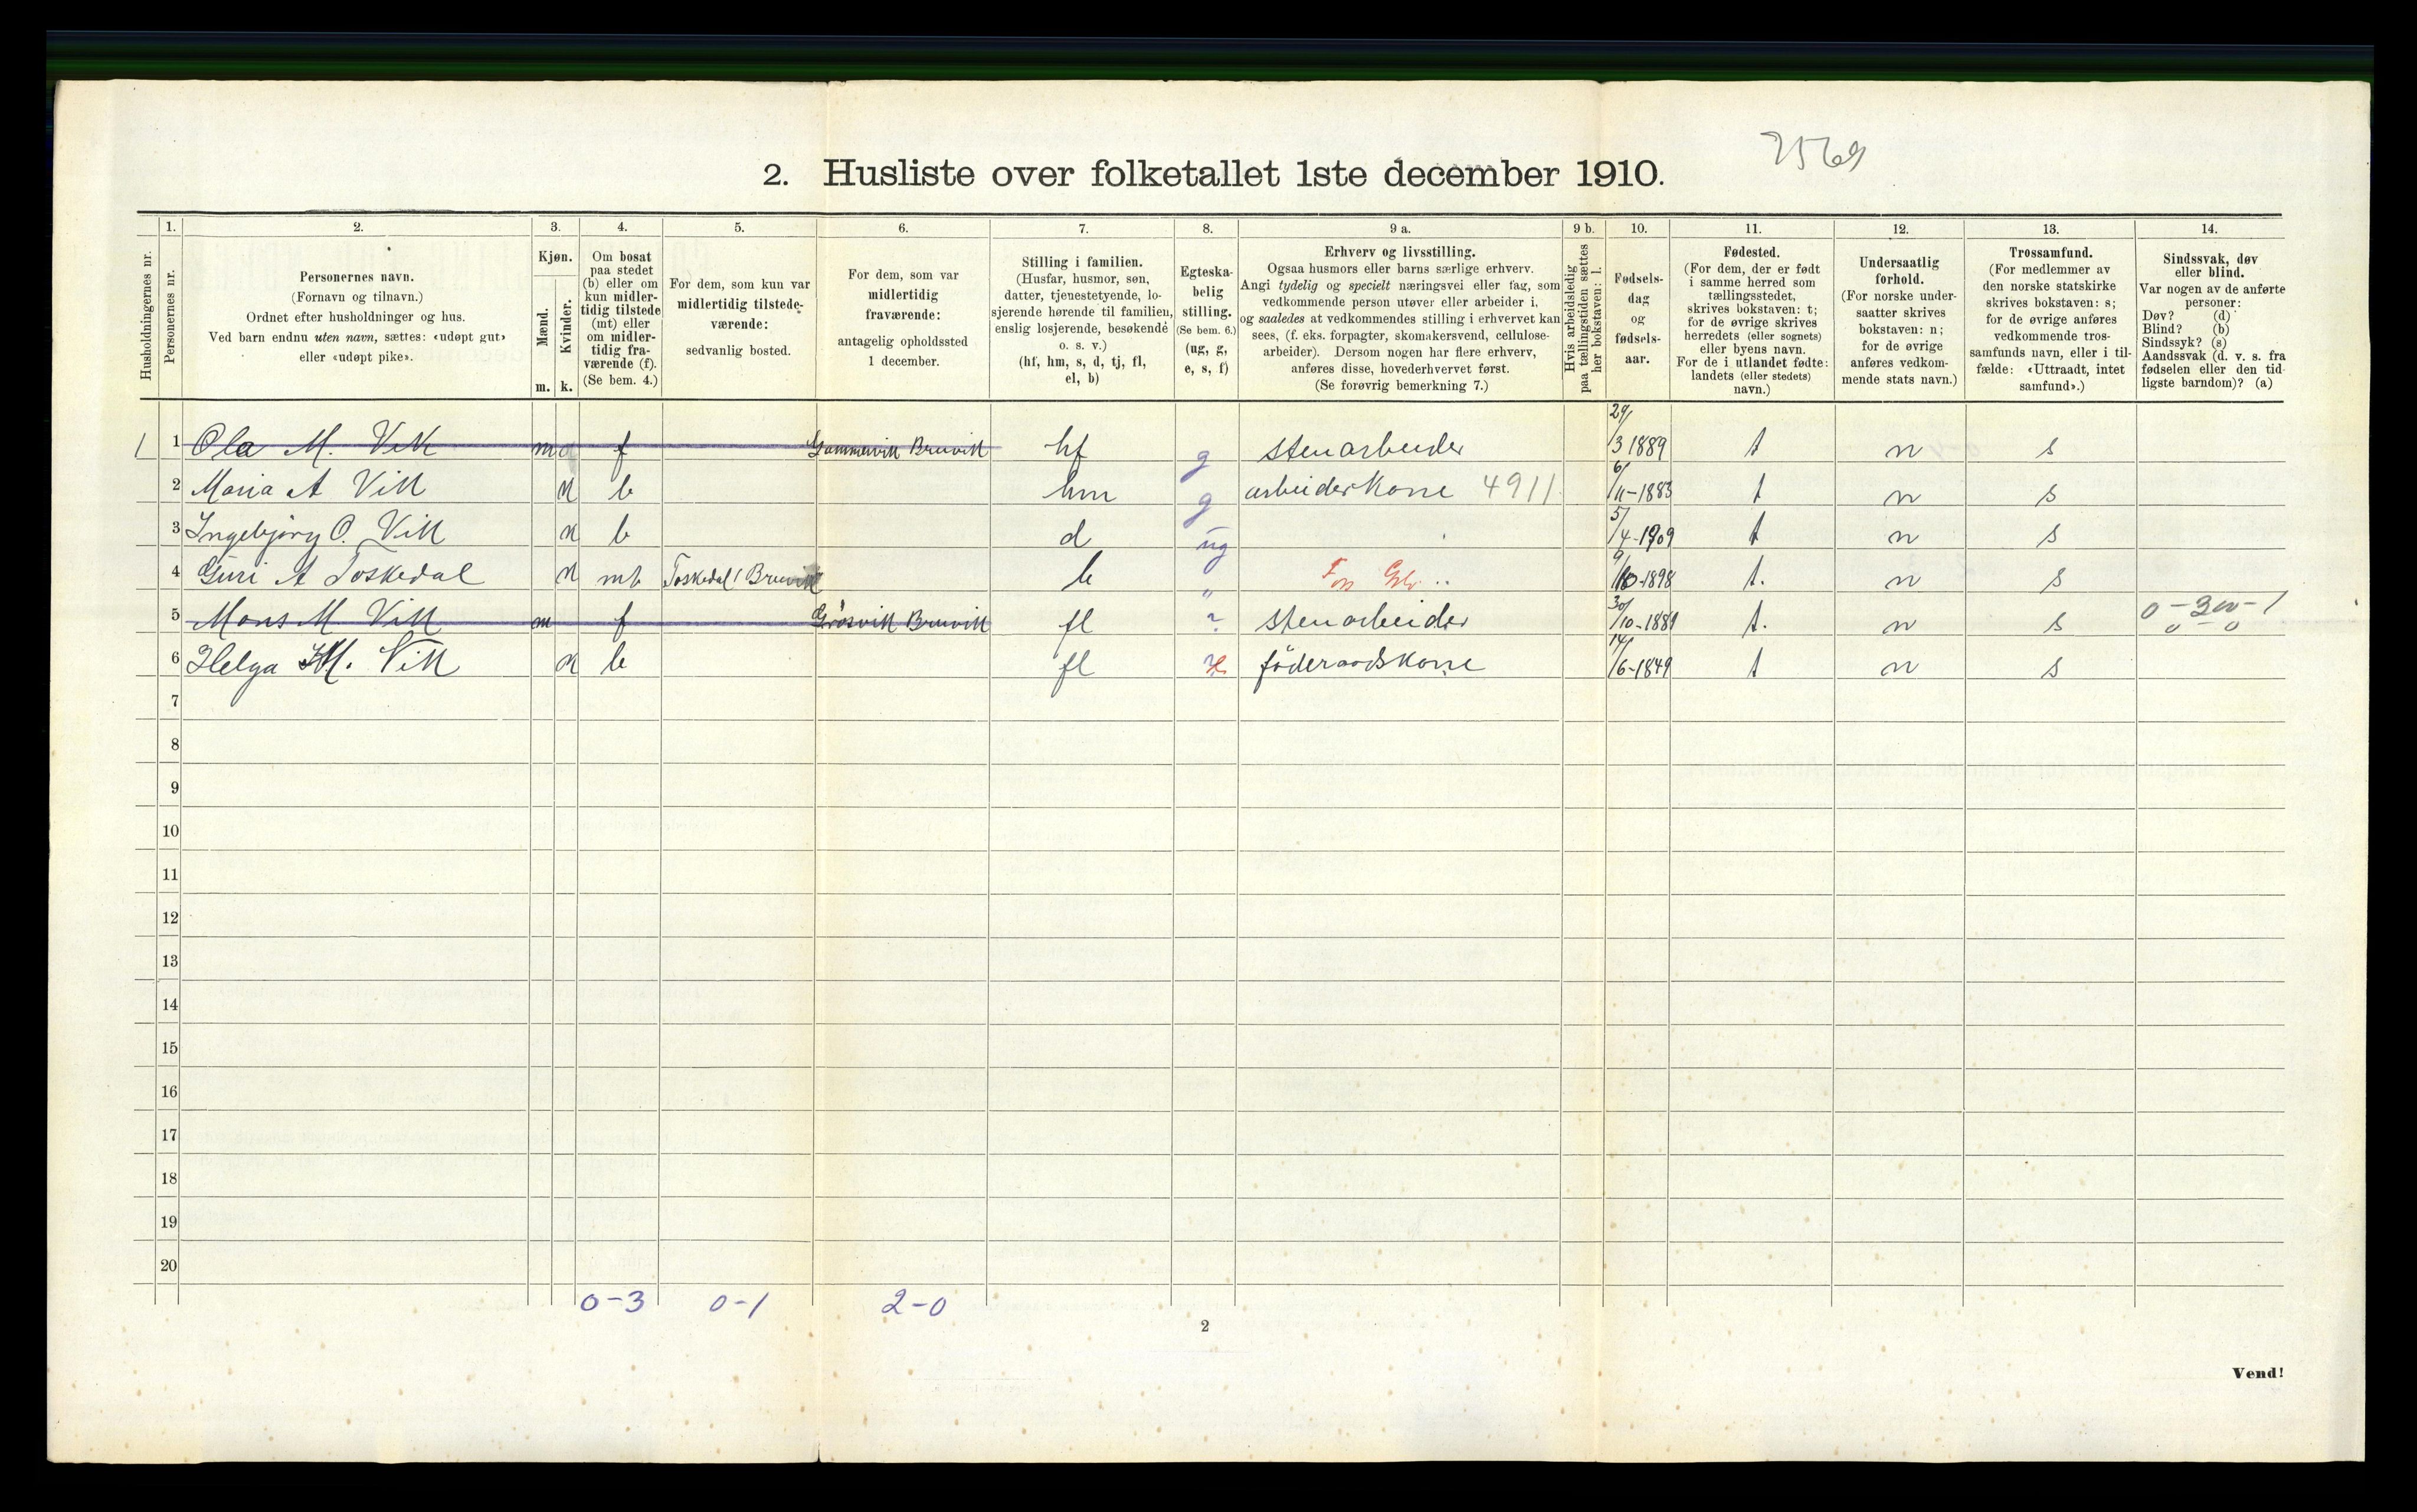 7569
2. Husliste over folketallet 1ste december 1910.
Husholdningernes nr.
1.
Personernes nr.
2.
Personernes navn.
(Fornavn og tilnavn.)
Ordnet efter husholdninger og hus.
Ved barn endnu uten navn, sættes: «udøpt gut»
eller «udøpt pike».
3.
Kjøn.
Mænd.
Kvinder.
m. k.
4.
Om bosat
paa stedet
(b) eller om
kun midler-
tidig tilstede
(mt) eller
om midler-
tidig fra-
værende (f).
(Se bem. 4.)
5.
For dem, som kun var
midlertidig tilstede-
værende:
sedvanlig bosted.
6.
For dem, som var
midlertidig
fraværende:
antagelig opholdssted
1 december.
7.
Stilling i familien.
(Husfar, husmor, søn,
datter, tjenestetyende, lo-
sjerende hørende til familien,
enslig losjerende, besøkende
o. s. v.)
(hf, hm, s, d, tj, fl,
el, b)
8.
Egteska-
belig
stilling.
(Se bem. 6.)
(ug, g,
e, s, f)
9 a.
Erhverv og livsstilling.
Ogsaa husmors eller barns særlige erhverv.
Angi tydelig og specielt næringsvei eller fag, som
vedkommende person utøver eller arbeider i,
og saaledes at vedkommendes stilling i erhvervet kan
sees, (f. eks. forpagter, skomakersvend, cellulose-
arbeider). Dersom nogen har flere erhverv,
anføres disse, hovederhvervet først.
(Se forøvrig bemerkning 7.)
9 b.
Hvis arbeidsledig
paa tællingstiden sættes
her bokstaven: l.
10.
Fødsels-
dag
og
fødsels-
aar.
11.
Fødested.
(For dem, der er født
i samme herred som
tællingsstedet,
skrives bokstaven: t;
for de øvrige skrives
herredets (eller sognets)
eller byens navn.
For de i utlandet fødte:
landets (eller stedets)
navn.)
12.
Undersaatlig
forhold.
(For norske under-
saatter skrives
bokstaven: n;
for de øvrige
anføres vedkom-
mende stats navn.)
13.
Trossamfund.
(For medlemmer av
den norske statskirke
skrives bokstaven: s;
for de øvrige anføres
vedkommende tros-
samfunds navn, eller i til-
fælde: «Uttraadt, intet
samfund».)
14.
Sindssvak, døv
eller blind.
Var nogen av de anførte
personer:
Døv? (d)
Blind? (b)
Sindssyk? (s)
Aandssvak (d. v. s. fra
fødselen eller den tid-
ligste barndom)? (a)
1 1 Ola M. Vik m f Gammervik Bruvik hf g stenarbeider 29/3 1889 t n s
2 Maria A Vik k b hm g arbeiderkone 4911 6/11-1883 t n s
3 Ingebjørg O. Vik k b d ug 5/4-1909 t n s
4 Guri A Toskedal k mt Toskedal i Bruvik b " 9/10-1898 t. n s
5 Mons M Vik m f Bruvik fl stenarbeider 30/10-1889 t. n s 0-300-1
0-0
6 Helga M. Vik k b fl föderaadskone 14/6-1849 t n s
7
8
9
10
11
12
13
14
15
16
17
18
19
20
0-3 0-1 2-0
2
Vend!